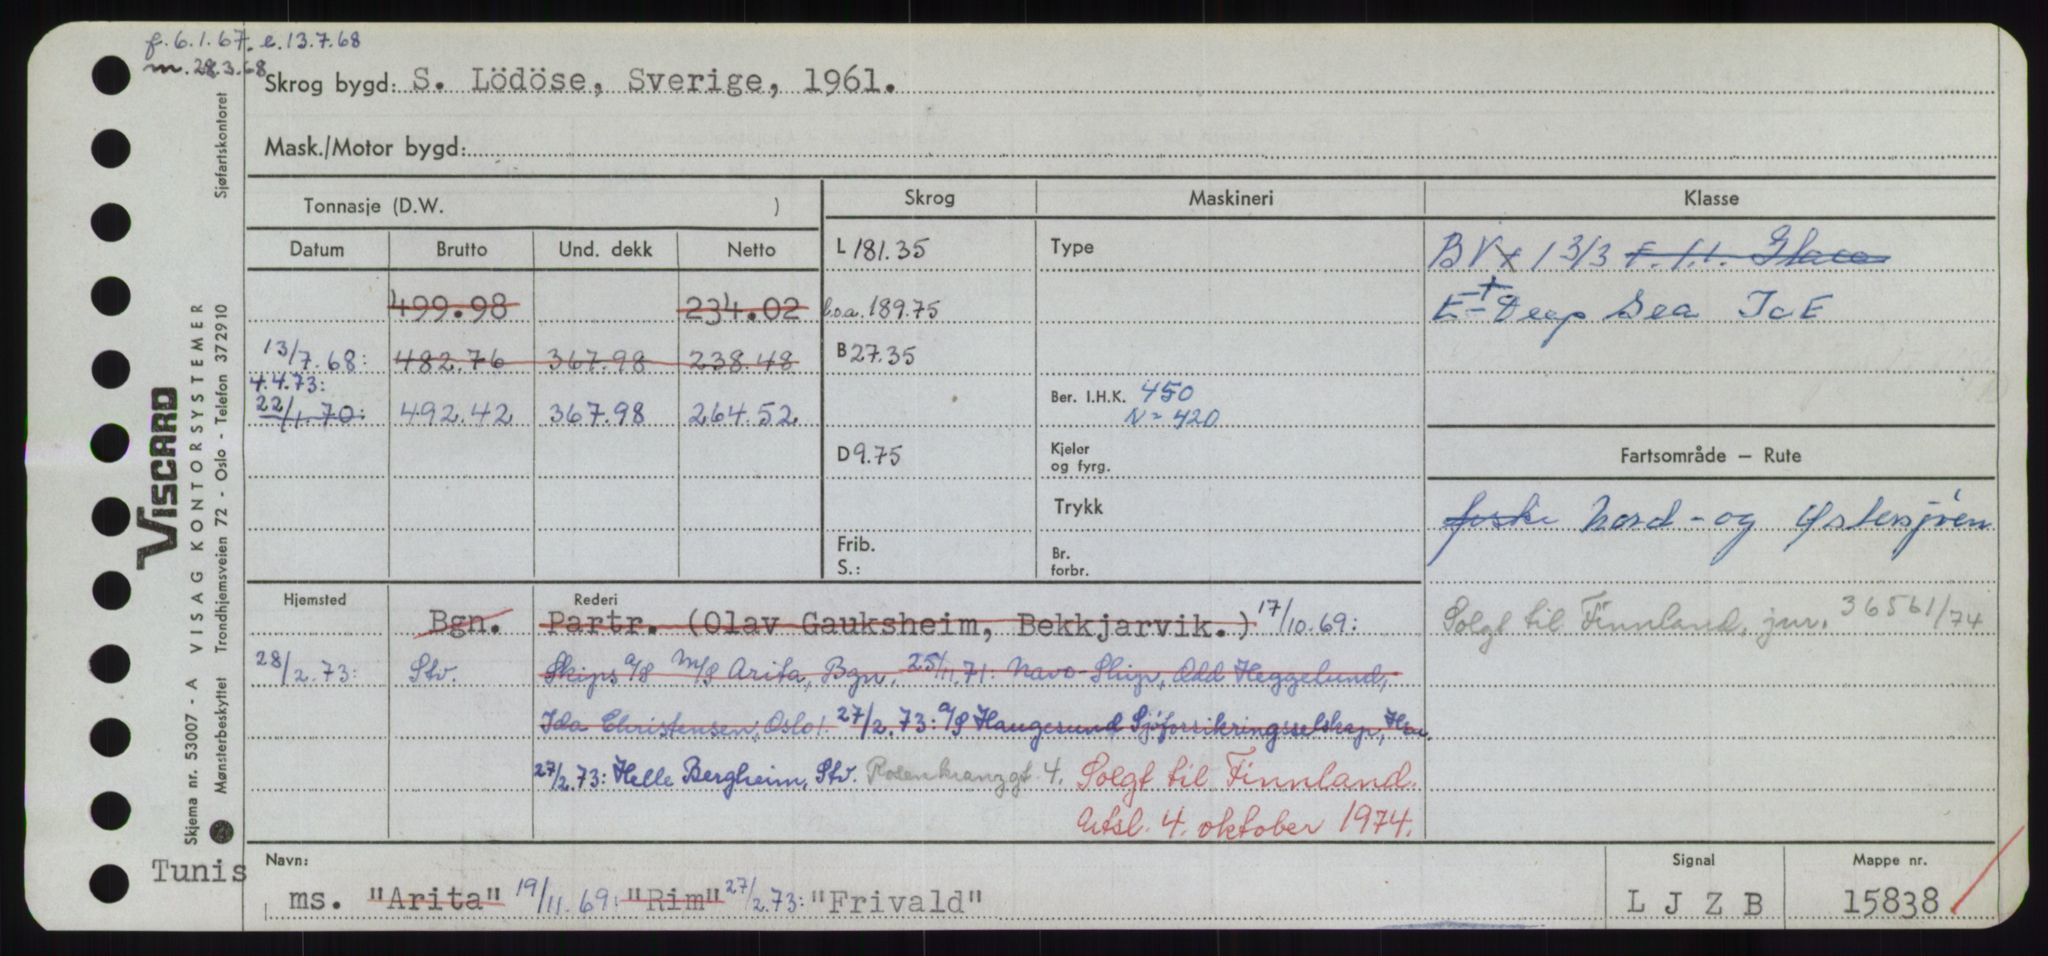 f. 6.1.67. e. 13.7.68
m. 28.3.68
Skrog bygd: S. Lödöse, Sverige, 1961.
Mask./Motor bygd:
Tonnasje (D.W. )
Skrog
Maskineri
Klasse
Datum Brutto Und. dekk Netto
L 181.35
Type
BV 1 3/3
499.98 234.02
l.o.a. 189.75
E Deep Sea IcE
13/7.68: 482.76 367.98 238.48
B 27.35
4.4.73:
22/1.70: 492.42 367.98 264.52
Ber. I.H.K. 450
N = 420
D 9.75
Kjeler
og fyrg.
Fartsområde – Rute
Trykk
Nord- og Østersjøen
Frib.
S.:
Br.
forbr.
Hjemsted
Rederi
Bgn. Partr. (Olav Gauksheim, Bekkjarvik.) 17/10.69:
Solgt til Finnland, jnr. 36561/74
28/2.73: Stv. Skips a/s m/s Arita, Bgn, 25/11.71: Navo-Ship, Odd Heggelund,
Ida Christensen, Oslo. 27/2.73: a/s Haugesund Sjøforsikringsselskap, Hsu.
27/2.73: Helle Bergheim, Stv. Rosenkranzgt. 4. Solgt til Finnland.
Utsl. 4. oktober 1974.
Navn:
Signal
Mappe nr.
Tunis
ms. "Arita" 19/11.69: "Rim" 27/2.73: "Frivald"
L J Z B
15838
VISCARD
Skjema nr. 53007 - A VISAG KONTORSYSTEMER
Mønsterbeskyttet Trondhjemsveien 72 - Oslo - Telefon 372910 Sjøfartskontoret